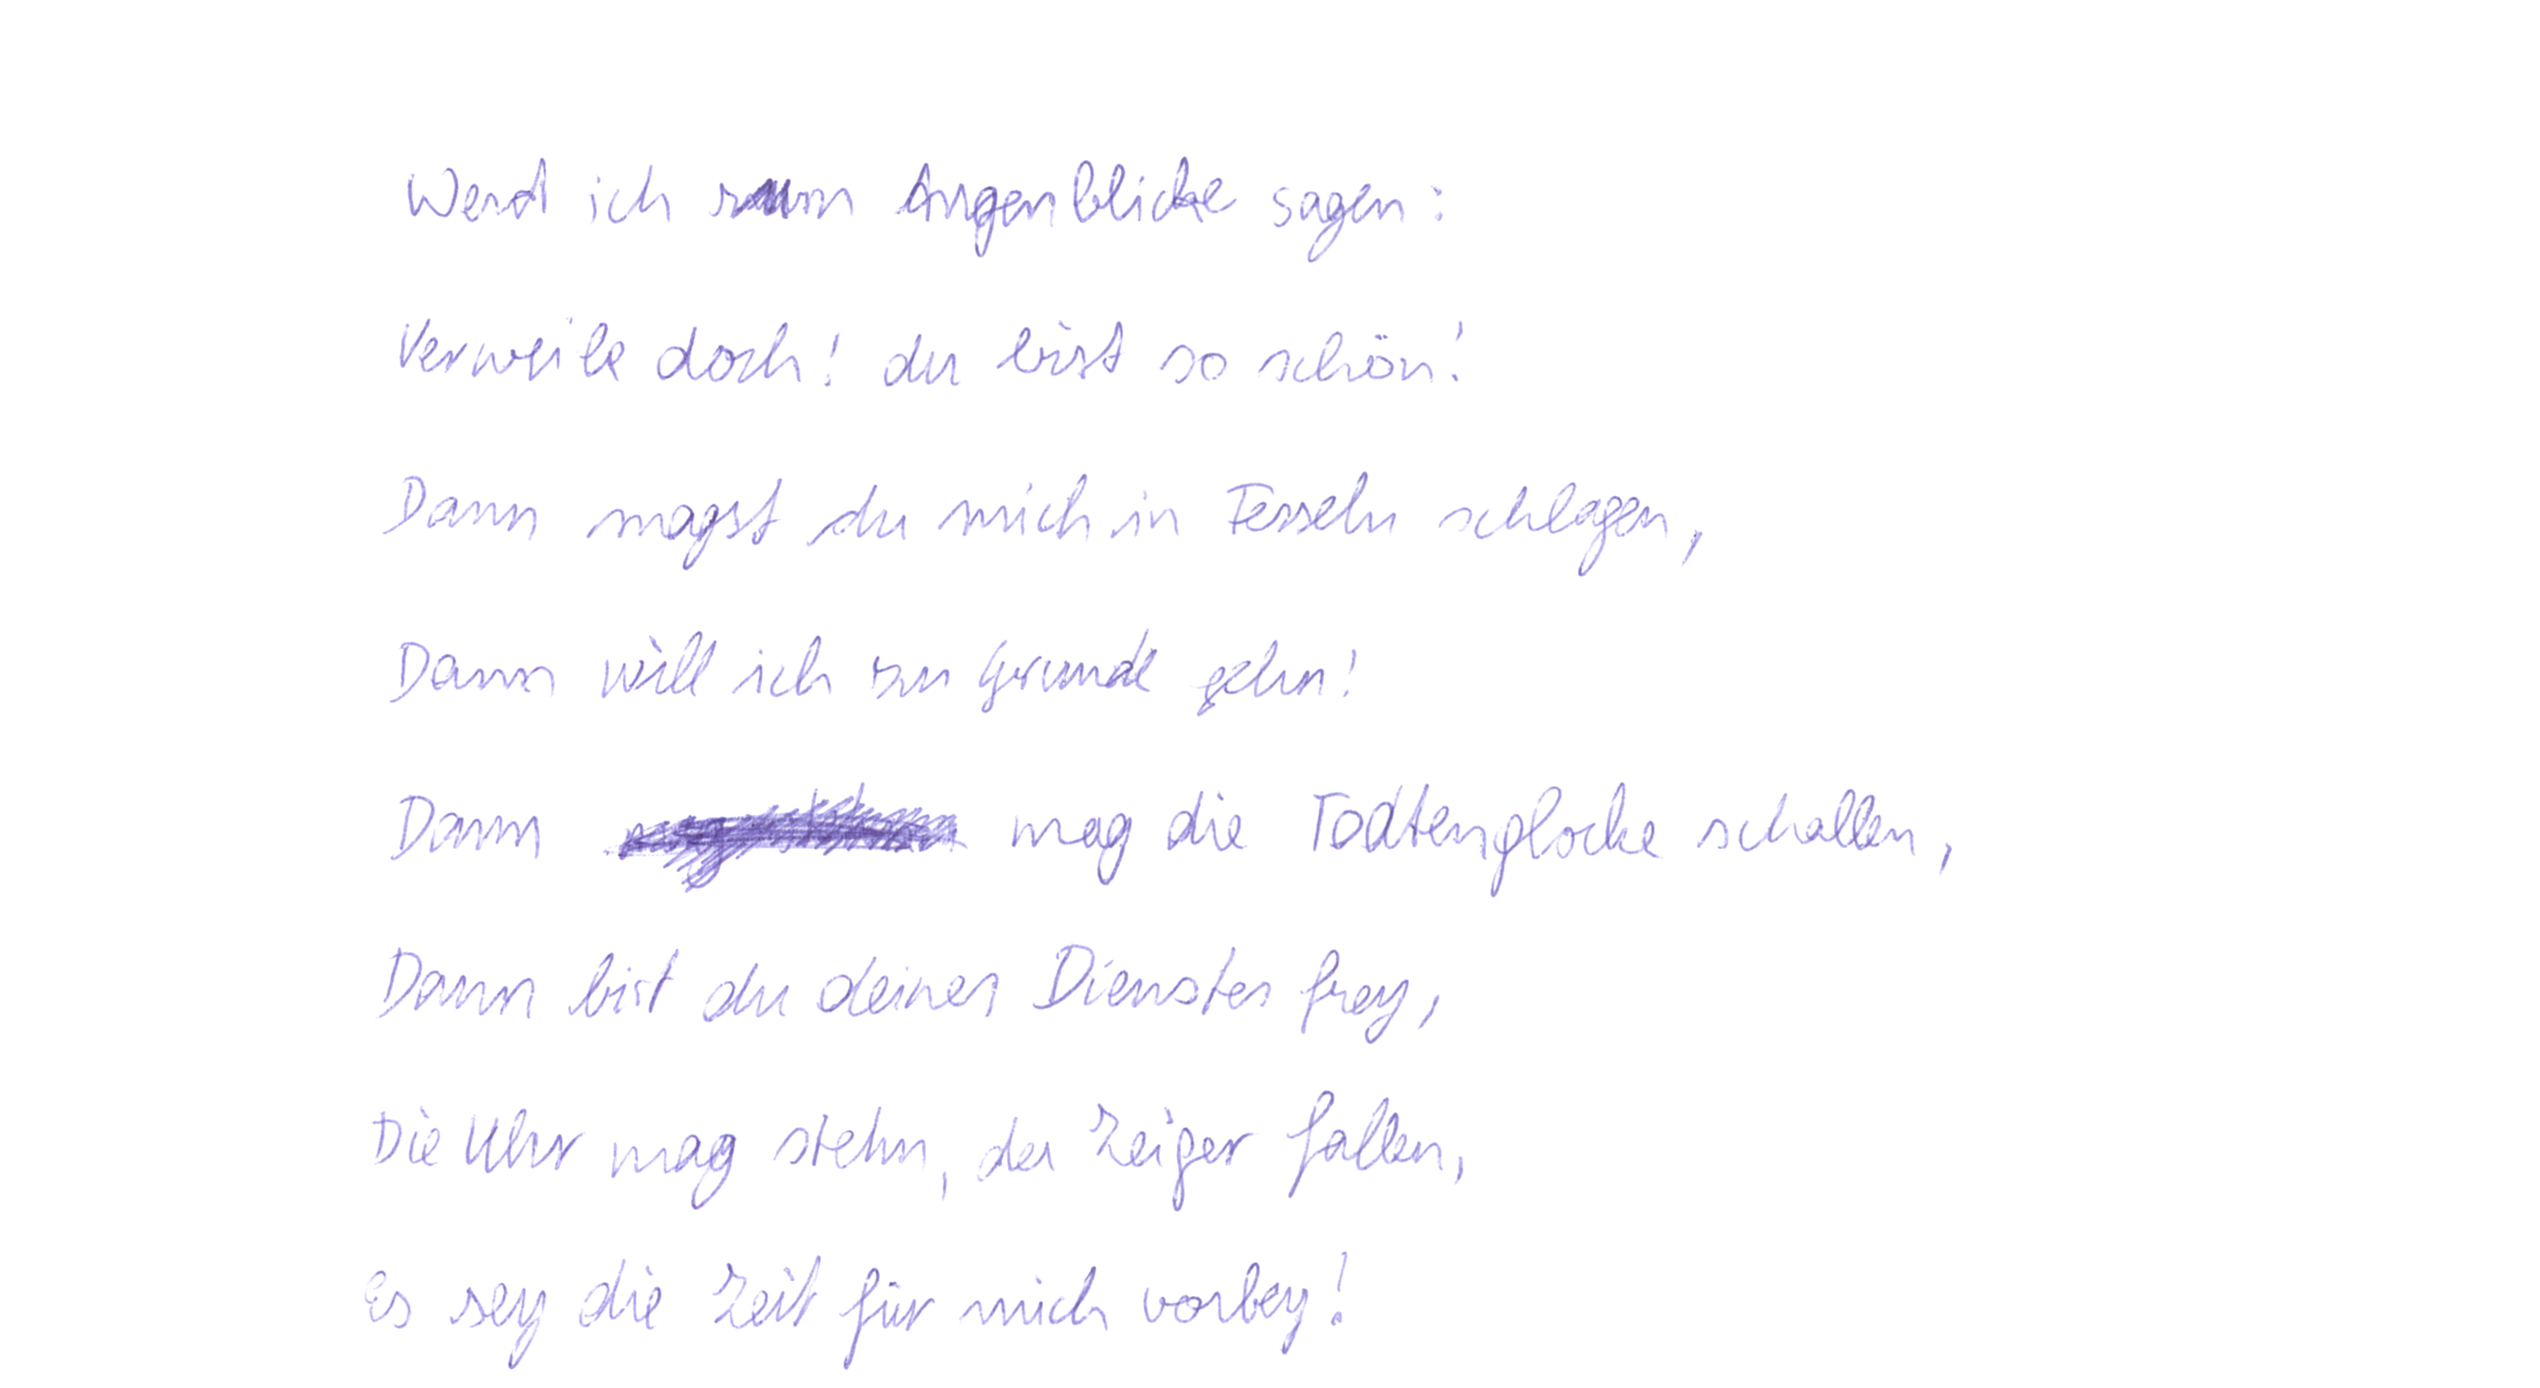 Werd ich zum Augenblicke sagen:
Verweile doch! du bist so schön!
Dann magst du mich in Fesseln schlagen,
Dann will ich zu Grunde gehn!
Dann mag die Todtenglocke schallen,
Dann bist du deines Dienstes frey,
Die Uhr mag stehn, der Zeiger fallen,
Es sey die Zeit für mich vorbey!